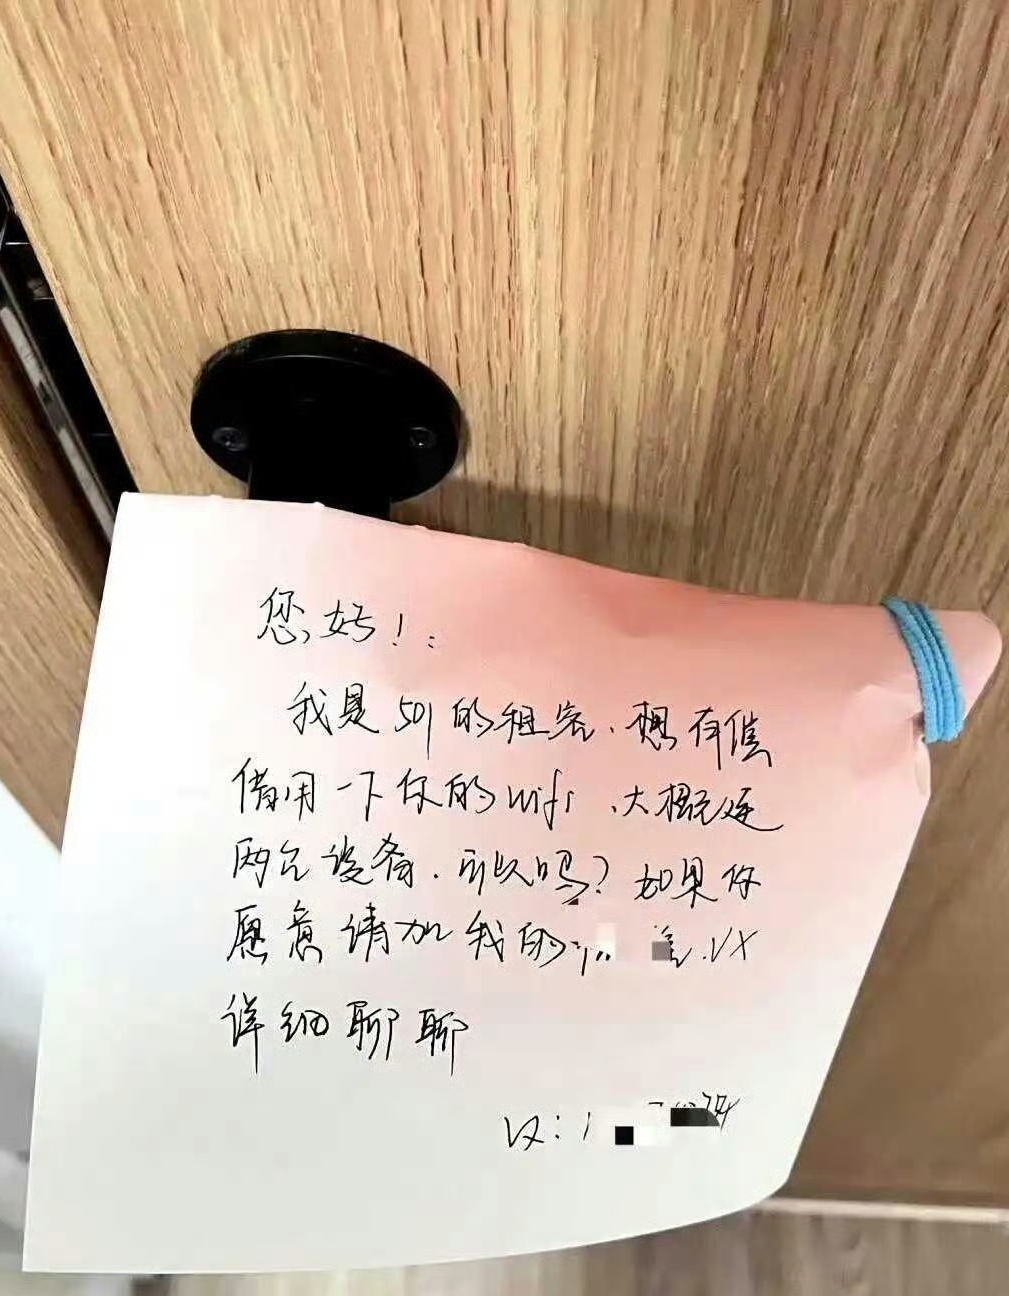 您好！：
我是501的租客.想有偿
借用一下你的wifi，大概连
两台设备.可以吗？如果你
愿意请加我的 .VX
详细聊聊
VX：1